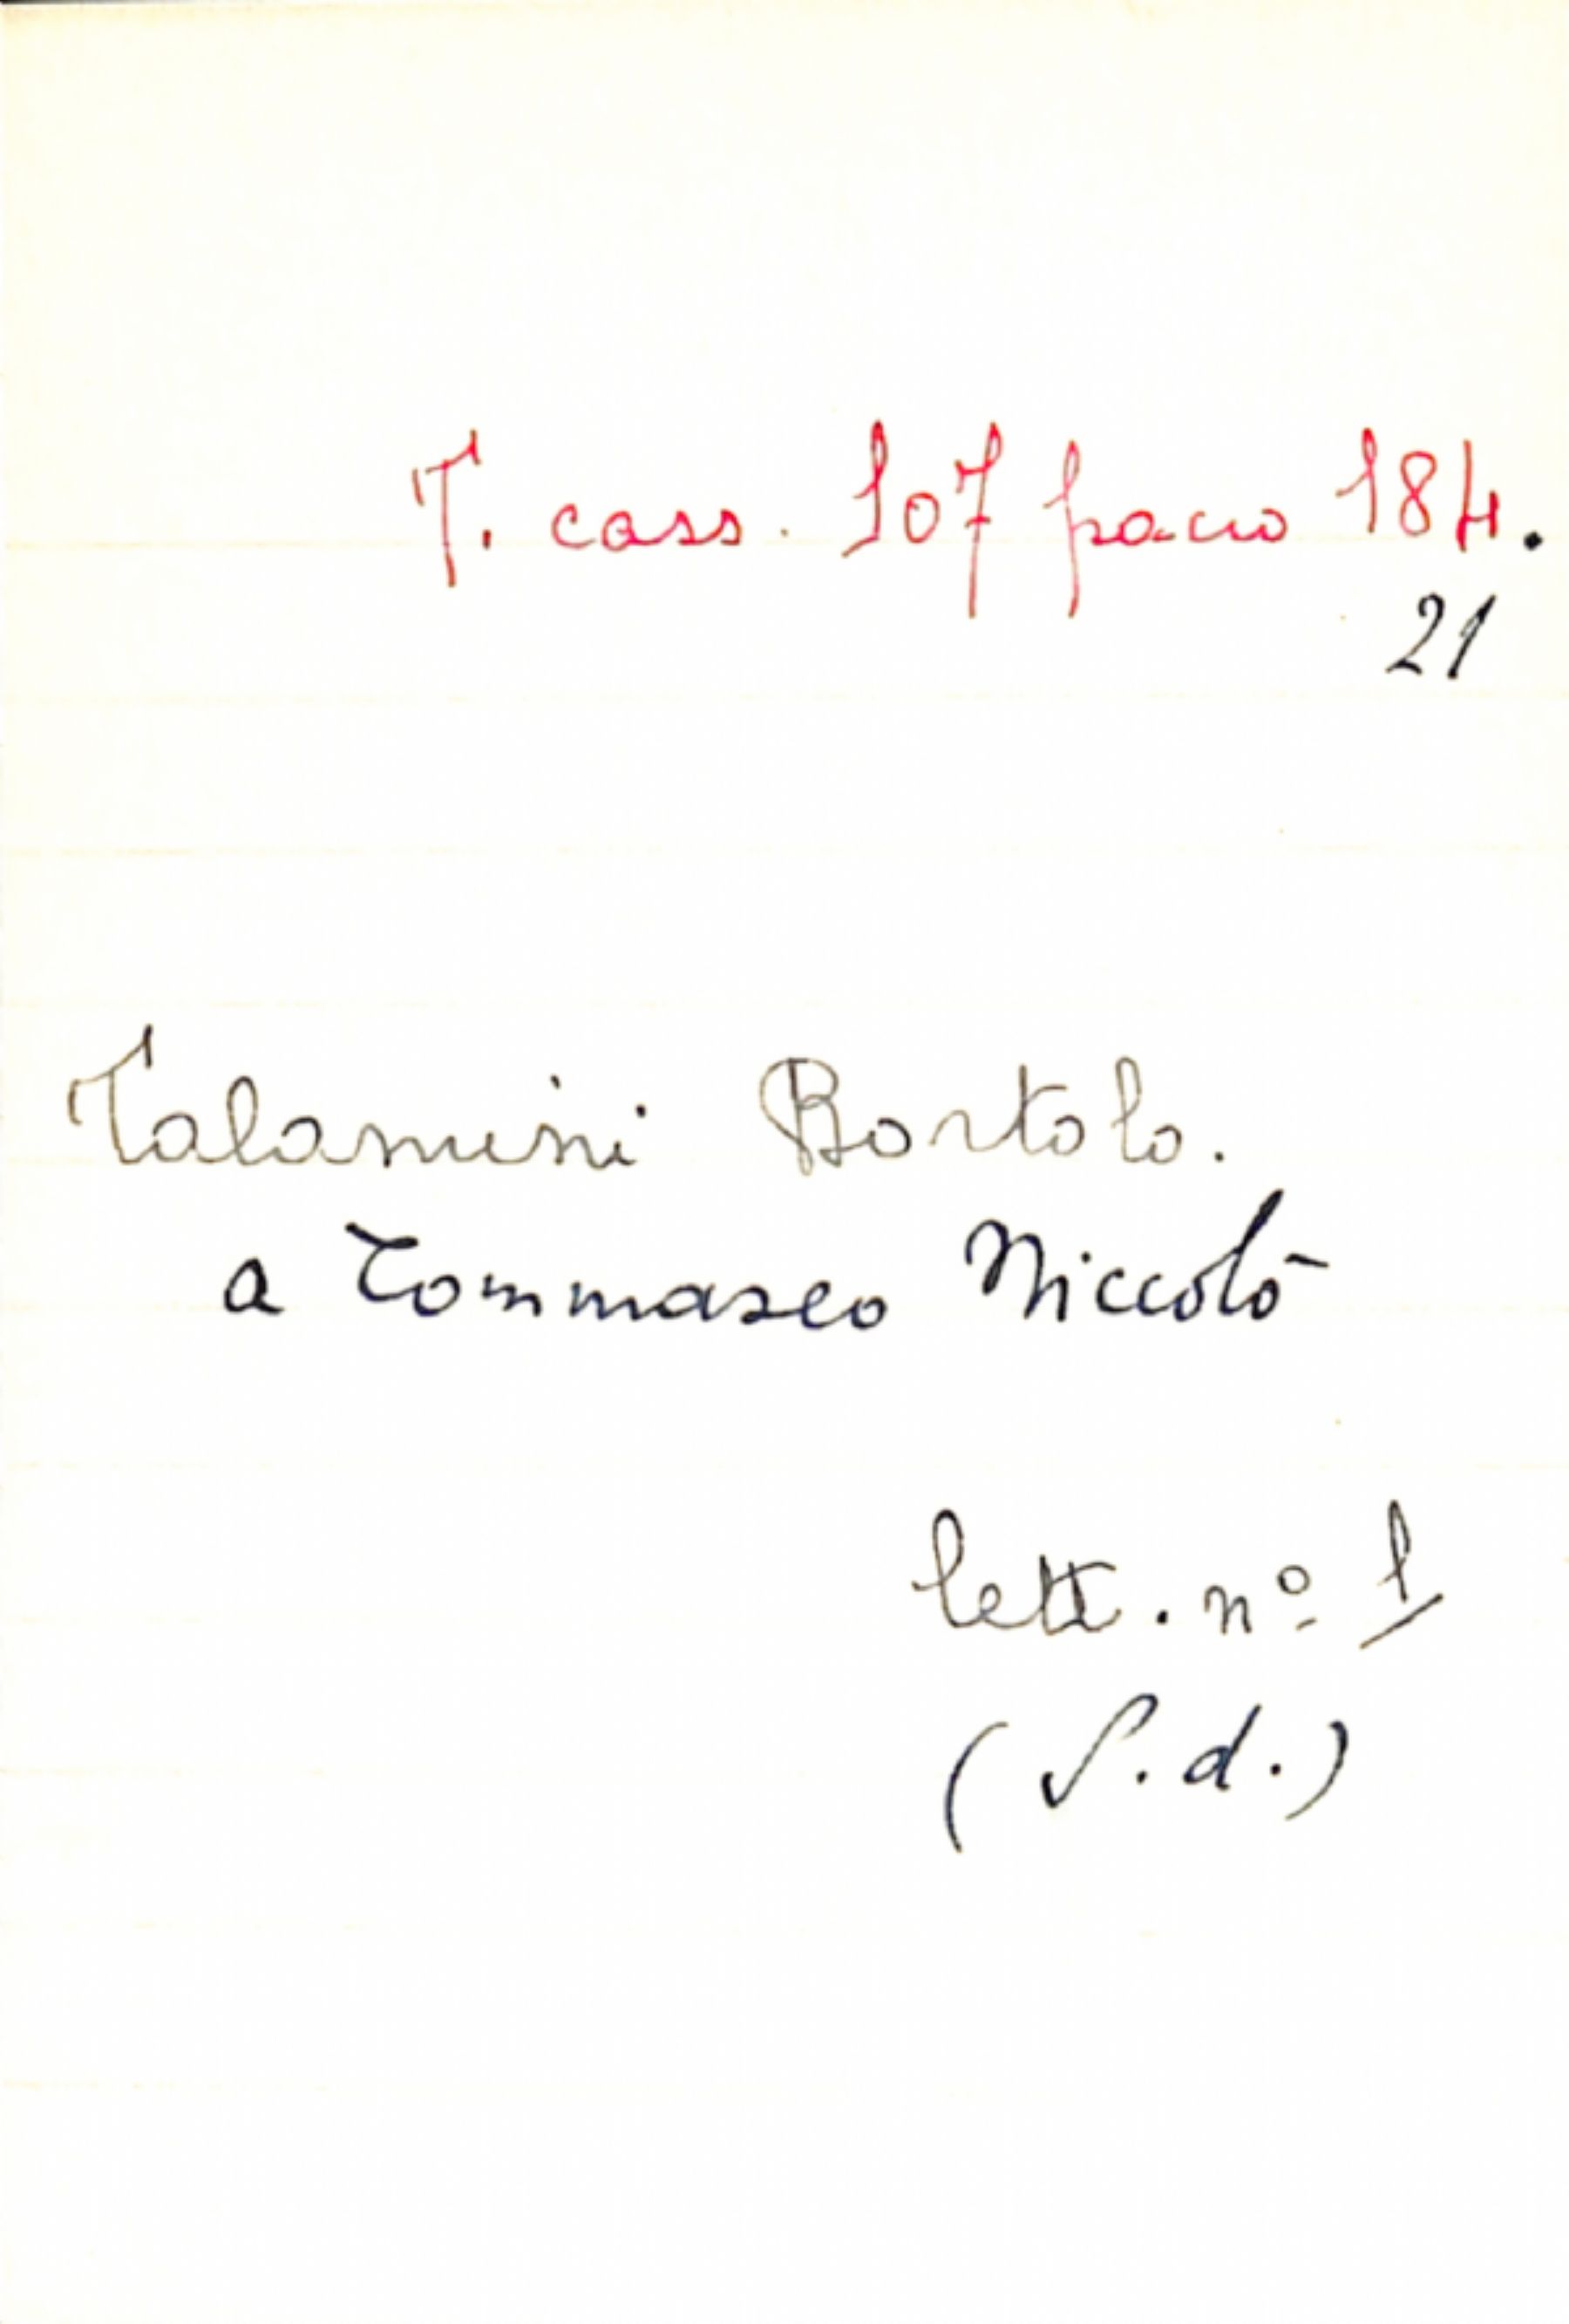 T. cass. 107 pacco 184.
21
Talamini Bortolo.
a Tommaseo Niccolò
lett. nº 1
(S.d.)